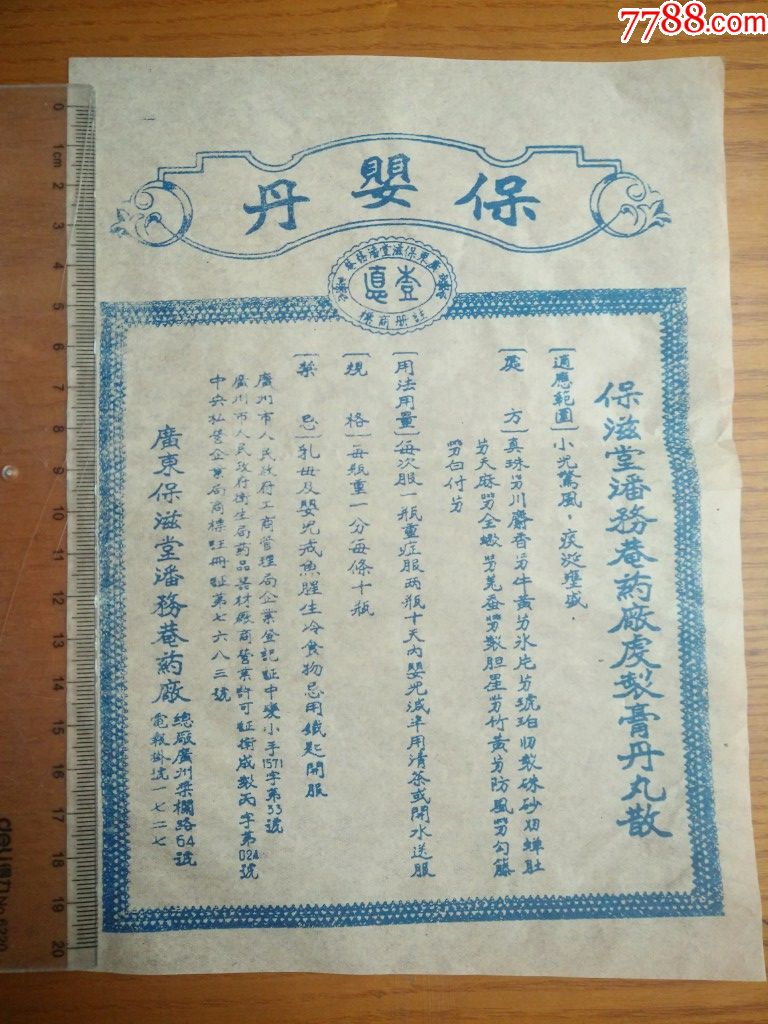 7788.com
保嬰丹
廣東保滋堂潘務菴
壹 真
註册商標
保滋堂潘務菴葯廠虔製膏丹丸散
〔適應範圍〕小児驚風，痰涎壅盛．
〔處 方〕真珠 川麝香 牛黄 氷片 琥珀 製硃砂 蝉肚
天麻 全蝎 羌蚕 製胆星 竹黄 防風 勾籐
白付
〔用法用量〕每次服一瓶重症服两瓶十天內嬰児减半用清茶或開水送服
〔規 格〕每瓶重一分每條十瓶
〔禁 忌〕乳母及嬰児戒魚腥生冷食物忌用鐵匙開服
廣州市人民政府工商管理局企業登記証中變小手1571字第33號
廣州市人民政府衛生局药品器材廠商營業許可証衛成製丙字第024號
中央私營企業局商標註冊証第七六八三號
廣東保滋堂潘務菴葯廠
總厰廣州槳欄路64號
電報掛號一七二七
0 1cm 2 3 4 5 6 7 8 9 10 11 12 13 14 15 16 17 18 19 20
deli